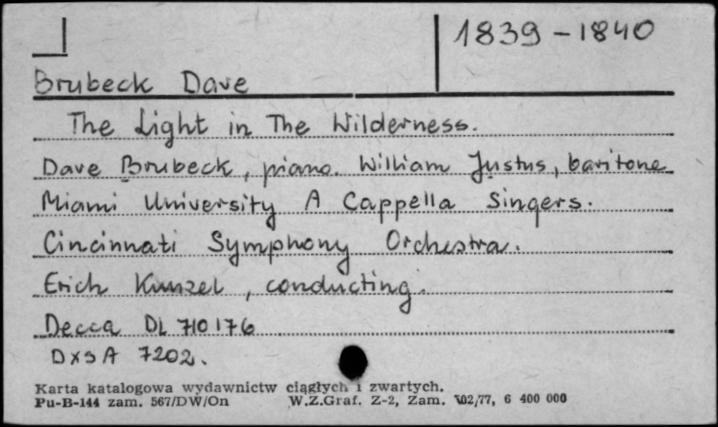 1839-1840
Brubeck Dave
The Light in The Wilderness.
Dave Brubeck, piano. William Justus, baritone
Miami University A Cappella Singers.
Cincinnati Symphony Orchestra.
Erich Kunzel, conducting.
Decca DL 710176
DXSA 7202.
Karta katalogowa wydawnictw ciągłych i zwartych.
Pu-B-144 zam. 567/DW/On W.Z.Graf. Z-2, Zam. 702/77, 6 400 000